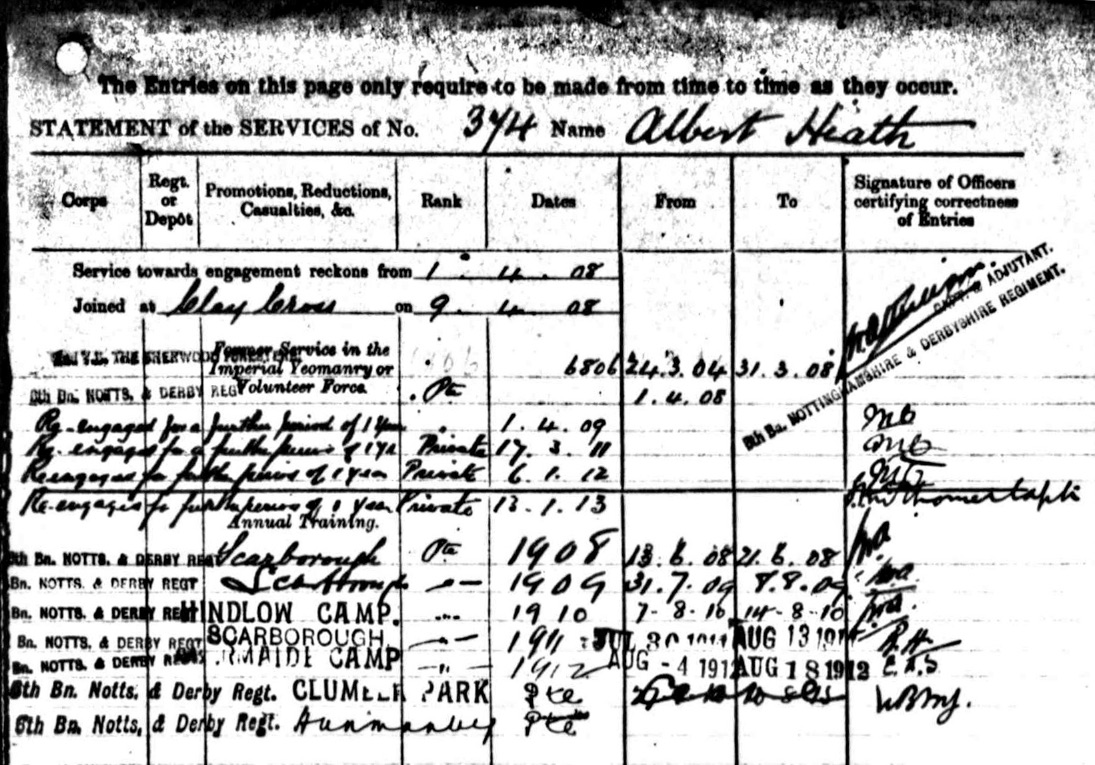 The Entries on this page only require to be made from time to time as they occur.
STATEMENT of the SERVICES of No. 374 Name Albert Heath
Corps Regt. or Depôt Promotions, Reductions, Casualties, &c. Rank Dates From To Signature of Officers certifying correctness of Entries
Service towards engagement reckons from 1 . 4 . 08
Joined at Clay Cross on 9 . 4 . 08
CAPT. & ADJUTANT.
6th Bn. NOTTINGHAMSHIRE & DERBYSHIRE REGIMENT.
THE SHERWOOD FORESTERS Former Service in the Imperial Yeomanry or Volunteer Force. 6806 24.3.04 31.3.08
6th Bn. NOTTS, & DERBY REGT Pte 1.4.08
Re-engaged for a further period of 1 Year 1.4.09
Re-engaged for a further period of 1 Yr Private 17.3.11
Re-engaged for further period of 1 year Private 6.1.12
Re-engaged for further period of 1 year Private 13.1.13
Annual Training.
6th Bn. NOTTS. & DERBY REGT Scarborough Pte 1908 13.6.08 21.6.08
Bn. NOTTS. & DERBY REGT Scarborough 1909 31.7.09 8.8.09
Bn. NOTTS. & DERBY REGT HINDLOW CAMP. 1910 7-8-10 14-8-10
Bn. NOTTS. & DERBY REGT SCARBOROUGH. 1911 JUL 30 1911 AUG 13 1911 R.H
Bn. NOTTS. & DERBY REGT CAMP 1912 AUG -4 1912 AUG 18 1912
6th Bn. Notts. & Derby Regt. CLUMBER PARK Pte
6th Bn. Notts. & Derby Regt. Hunmanby Pte